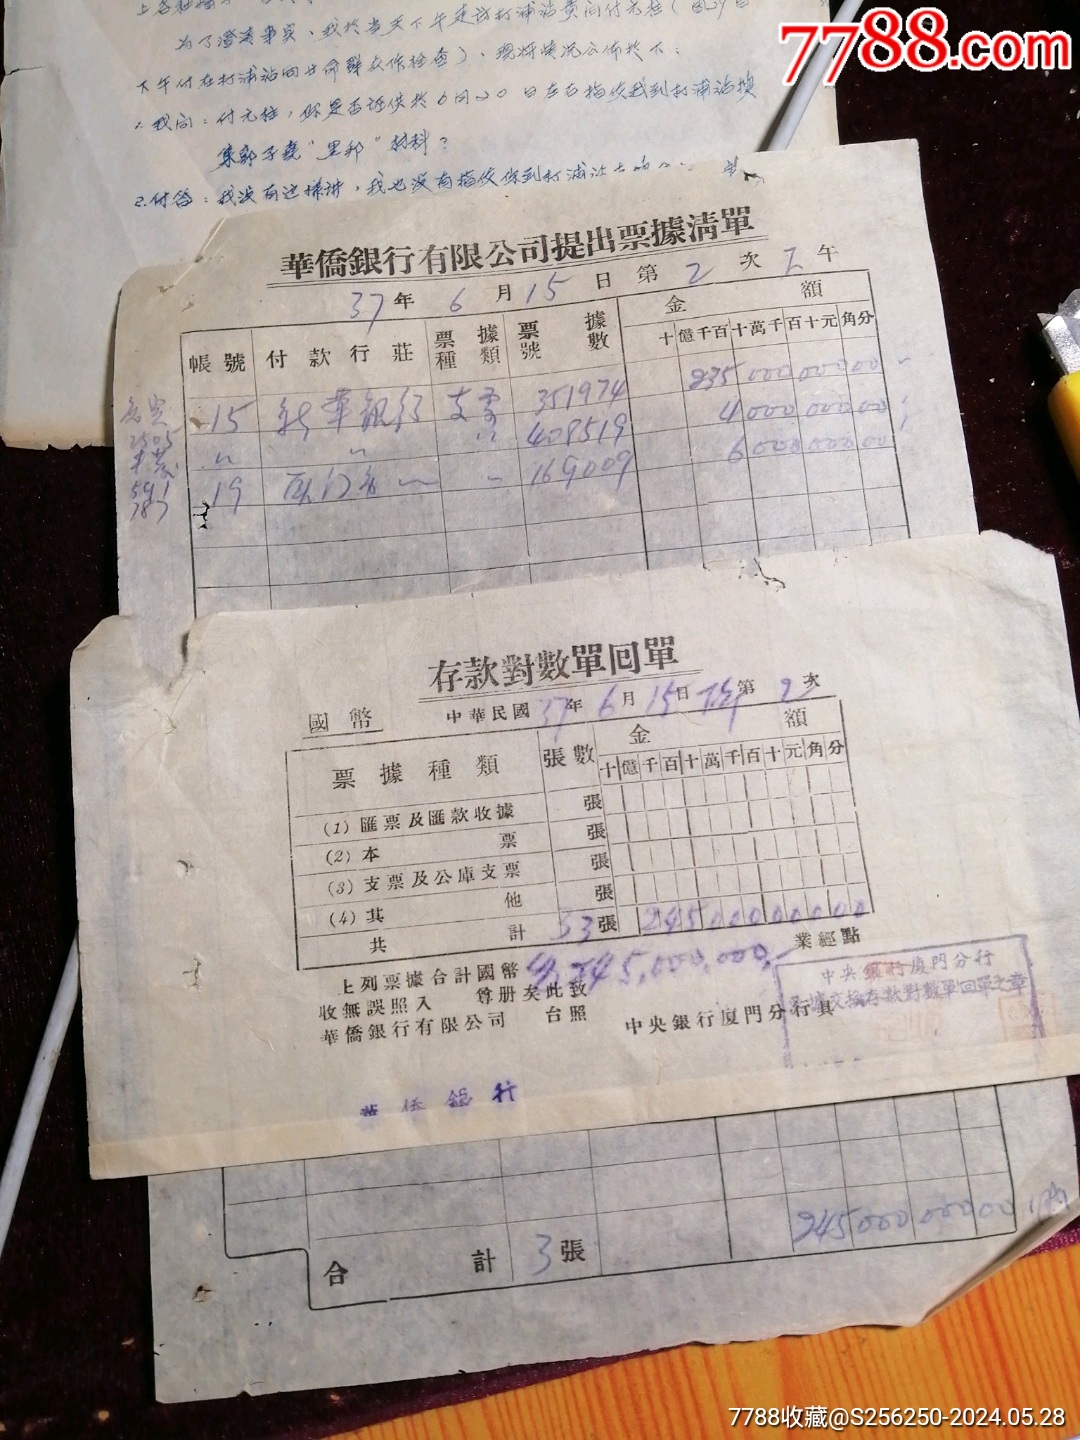 7788.com
为了澄清事实，我於当天下午走访打浦站黄同付元桂
下午付在打浦站向廿革命群众作检查），现将情况公佈於下：
1. 我问：付元桂，你是否证供於6月20日左右指使我到打浦站搜
集郭子龙“黑邦”材料？
2. 付答：我没有这样讲，我也没有指使你到打浦
華僑銀行有限公司提出票據清單
37年 6 月 15 日 第 2 次 下 午
帳號 付款行莊 票據種類 票據號數 金額
十億千百十萬千百十元角分
15 新華銀行 支票 351974 235 000 000 00
〃 〃 〃 408519 4 000 000 00
19 厦门市 〃 169009 6 000 000 00
2505
591
787
存款對數單回單
國幣 中華民國 37年 6月 15日 下午 第 2 次
票據種類 張數 金額
十億千百十萬千百十元角分
(1) 匯票及匯款收據 張
(2) 本票 張
(3) 支票及公庫支票 張
(4) 其他 張
共計 3張 245 000 000 00
上列票據合計國幣 245,000,000. 業經點
收無誤照入 尊册矣此致
華僑銀行有限公司 台照 中央銀行廈門分行具
中央銀行廈門分行
票據交換存款對數單回單之章
華僑銀行
合計 3張 245 000 000 00
7788收藏@S256250-2024.05.28